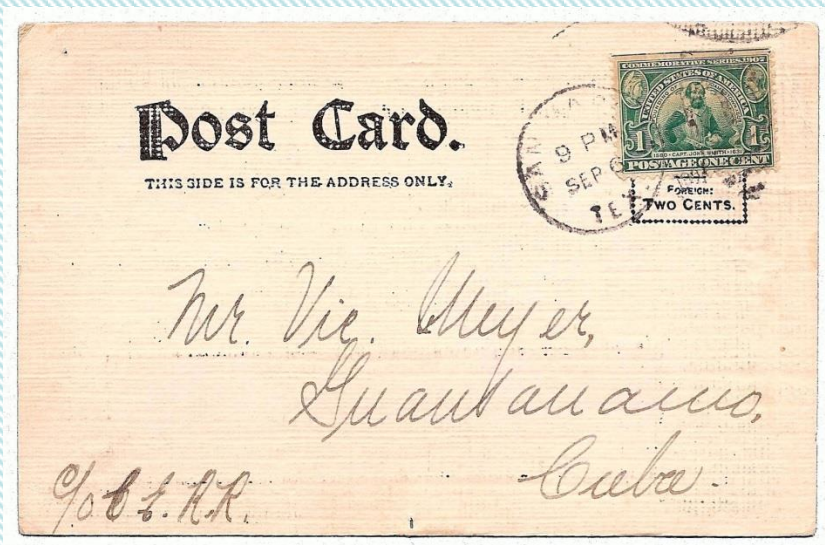 Post Card.
THIS SIDE IS FOR THE ADDRESS ONLY.
COMMEMORATIVE SERIES 1907
UNITED STATES OF AMERICA
1 1
1580 · CAPT. JOHN SMITH · 1631
POSTAGE ONE CENT
9 PM
SEP 6
TEX
FOREIGN:
TWO CENTS.
Mr. Vic. Meyer,
Guantanamo,
Cuba.
c/o C E. R.R.